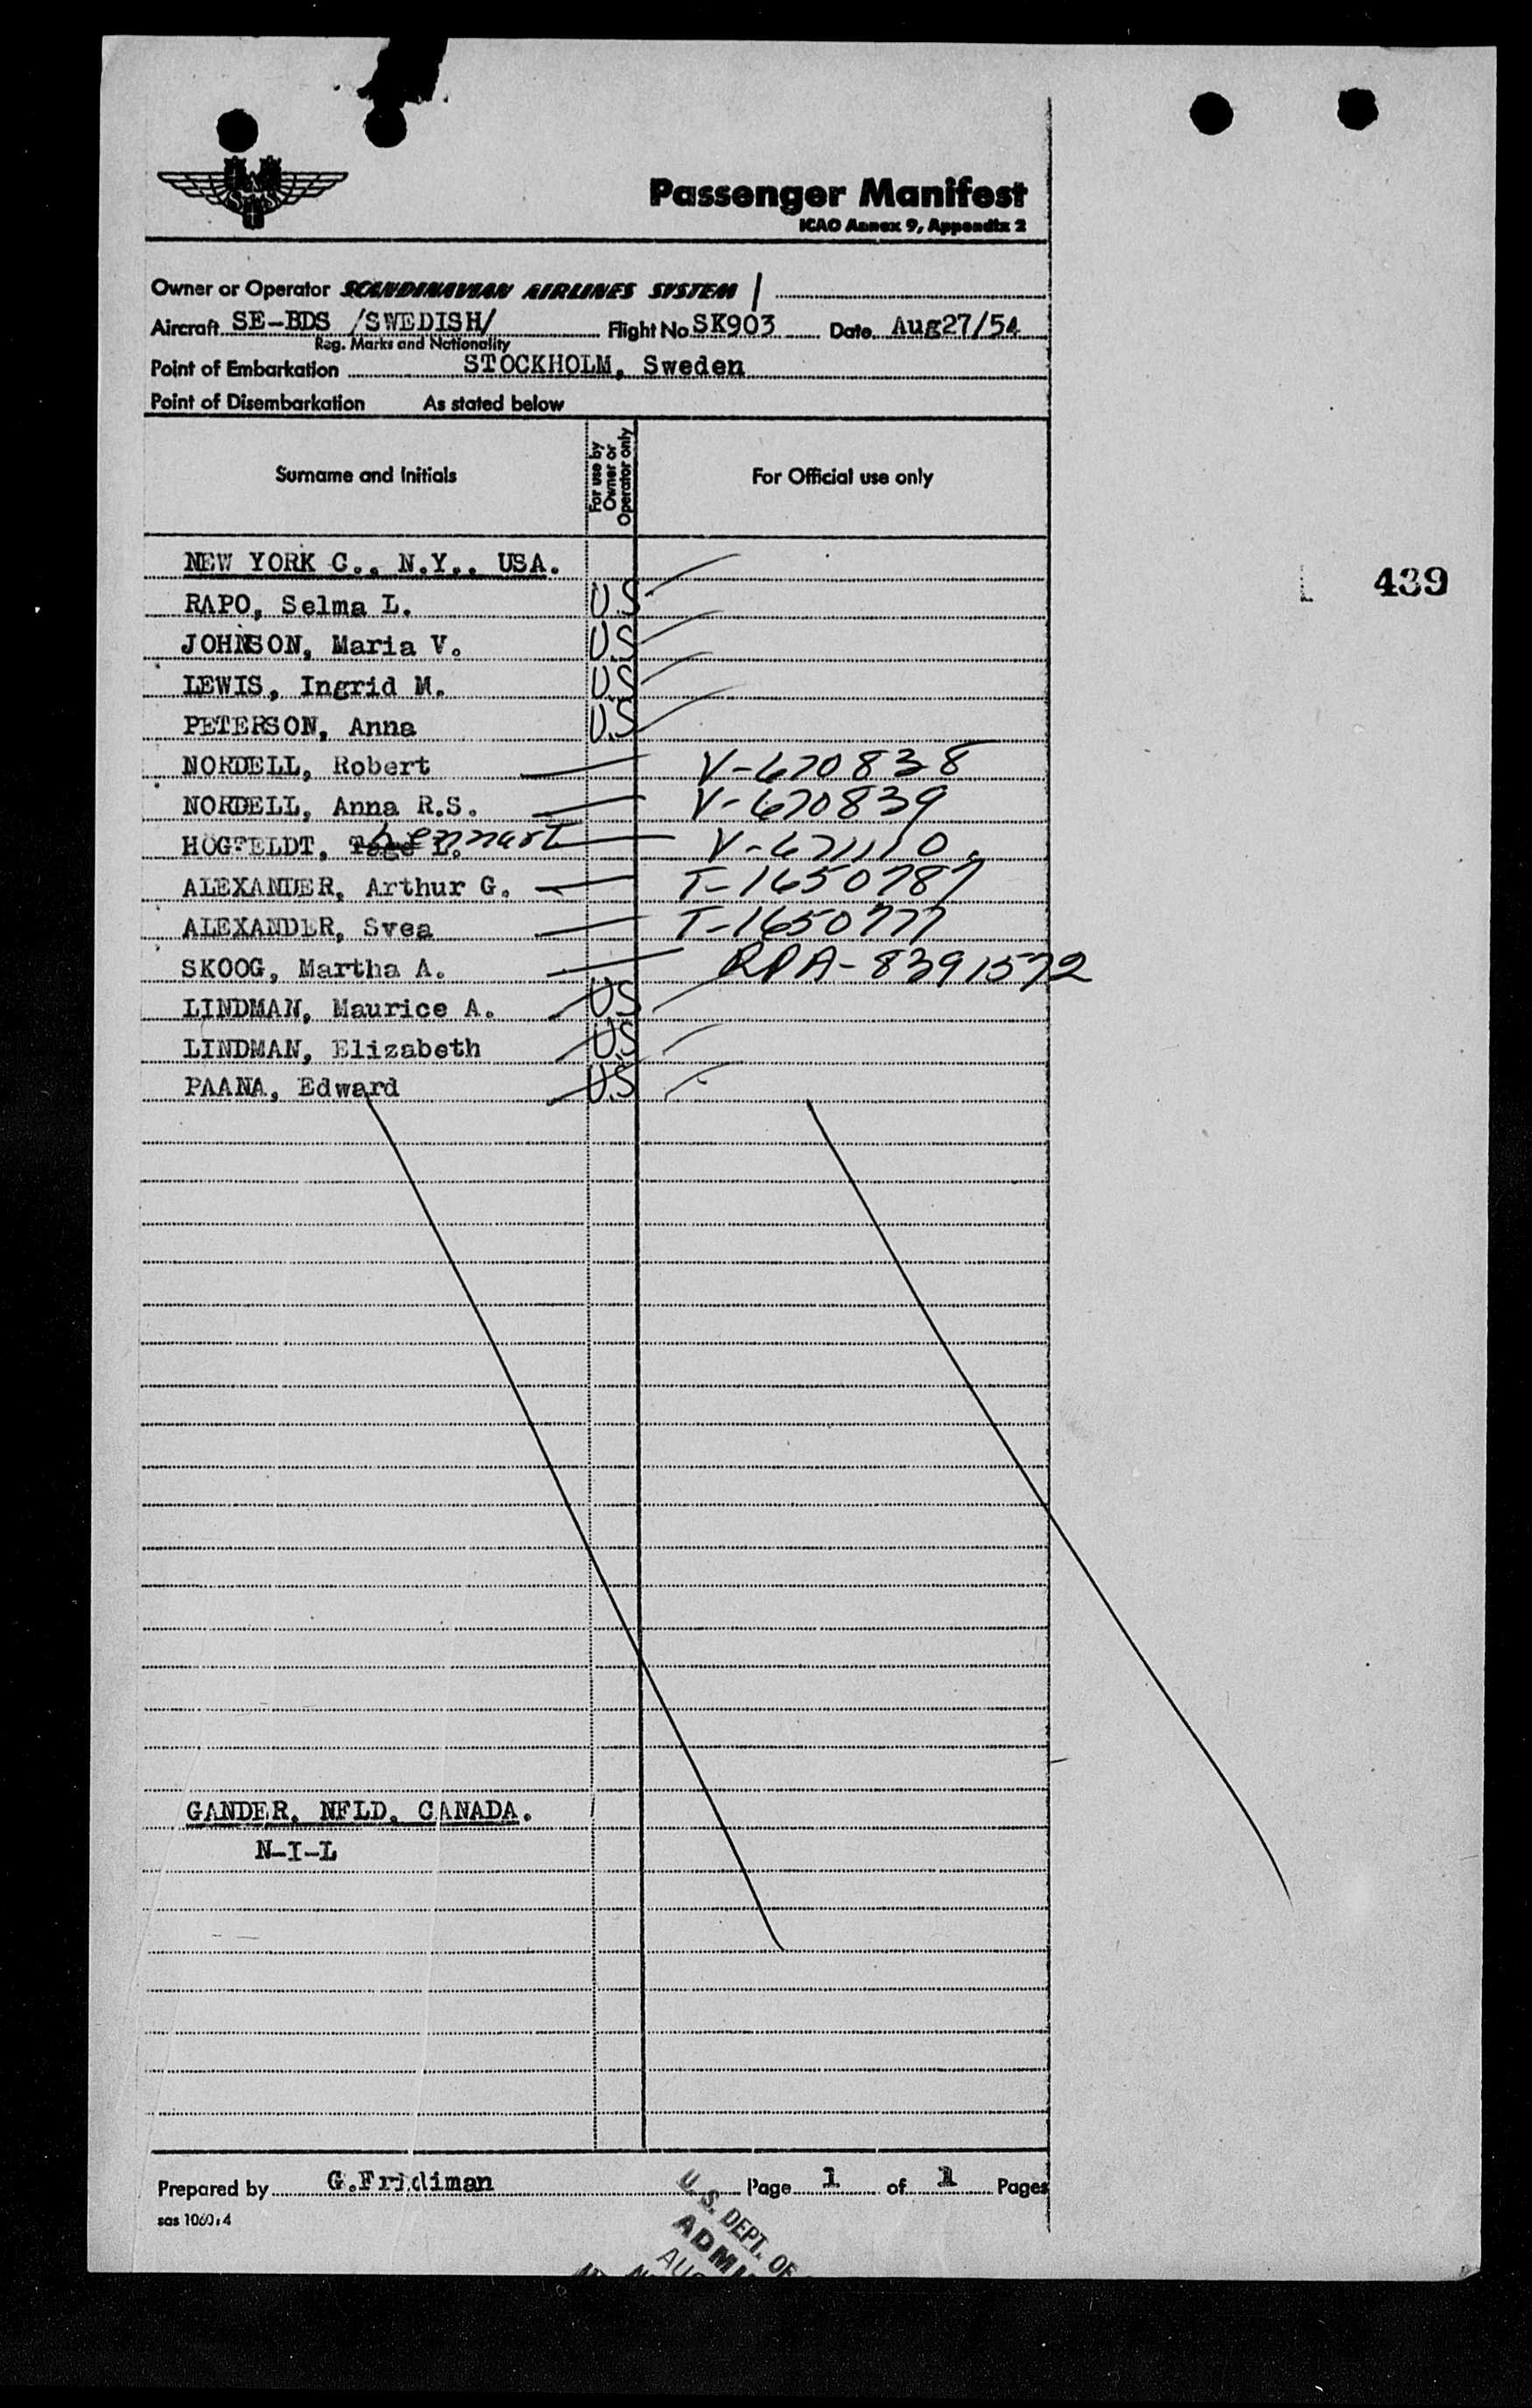 SAS
Passenger Manifest
ICAO Annex 9, Appendix 2
Owner or Operator SCANDINAVIAN AIRLINES SYSTEM
Aircraft SE-BDS /SWEDISH/ Flight No. SK903 Date Aug27/54
Reg. Marks and Nationality
Point of Embarkation STOCKHOLM, Sweden
Point of Disembarkation As stated below
Surname and Initials For use by Owner or Operator only For Official use only
NEW YORK C., N.Y., USA.
439
RAPO, Selma L. U.S
JOHNSON, Maria V. U.S
LEWIS, Ingrid M. U.S
PETERSON, Anna U.S
NORDELL, Robert V-670838
NORDELL, Anna R.S. V-670839
HOGFELDT, Tage L. Lennart V-671110
ALEXANDER, Arthur G. T-1650787
ALEXANDER, Svea T-1650777
SKOOG, Martha A. RPA-8391572
LINDMAN, Maurice A. US
LINDMAN, Elizabeth US
PAANA, Edward U.S
GANDER, NFLD, CANADA.
N-I-L
Prepared by G.Fridiman Page 1 of 1 Pages
sas 1060:4
U. S. DEPT. OF
ADMI
AUG